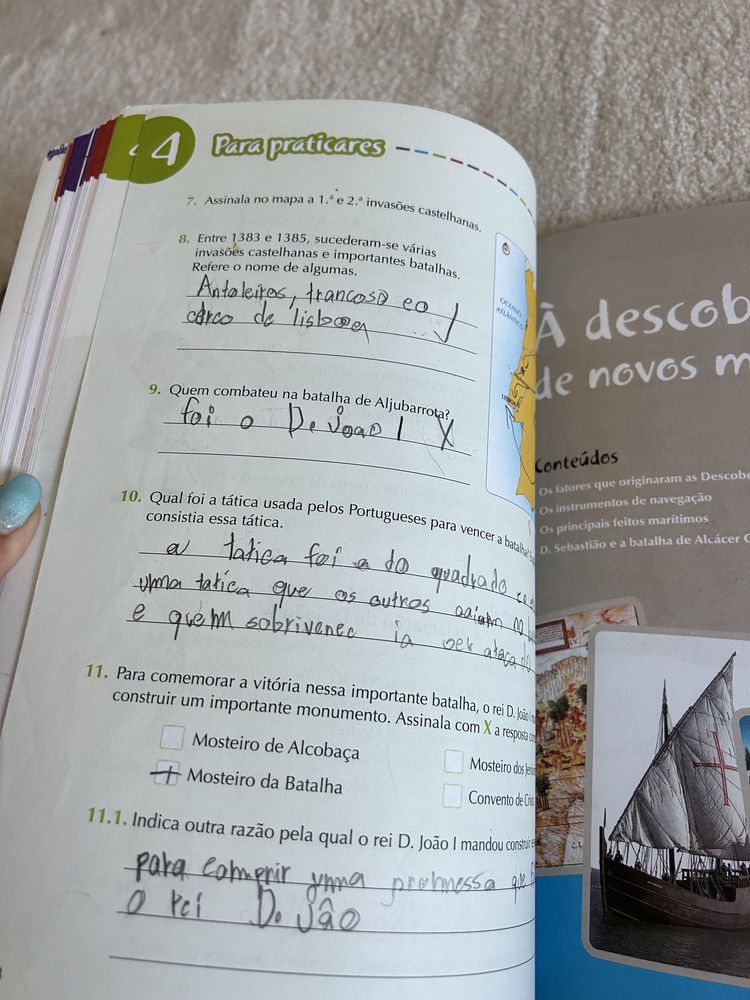 4 Para praticares
7. Assinala no mapa a 1.ª e 2.ª invasões castelhanas.
8. Entre 1383 e 1385, sucederam-se várias
invasões castelhanas e importantes batalhas.
Refere o nome de algumas.
Antoleiros, trancoso e o
cerco de lisboa
OCEANO
ATLÂNTICO
9. Quem combateu na batalha de Aljubarrota?
foi o D. João I X
10. Qual foi a tática usada pelos Portugueses para vencer a batalha?
consistia essa tática.
a tatica foi a do quadrado
uma tatica que os outros
e quem sobrivenec ia ser ataca do
11. Para comemorar a vitória nessa importante batalha, o rei D. João I
construir um importante monumento. Assinala com X a resposta
Mosteiro de Alcobaça
Mosteiro dos
Mosteiro da Batalha
Convento de
11.1. Indica outra razão pela qual o rei D. João I mandou construir
para comprir uma promessa que
o rei D. Jâo
À descob
de novos m
Conteúdos
Os fatores que originaram as Descob
Os instrumentos de navegação
Os principais feitos marítimos
D. Sebastião e a batalha de Alcácer